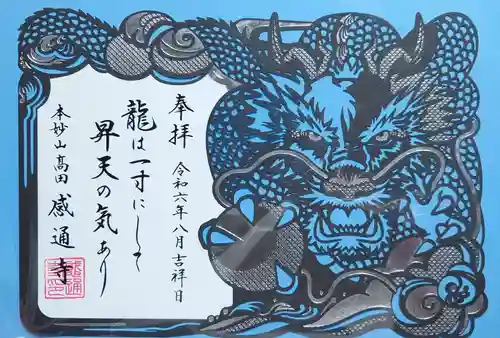 奉拝
令和六年八月吉祥日
龍は一寸にして
昇天の気あり
本妙山高田 感通寺